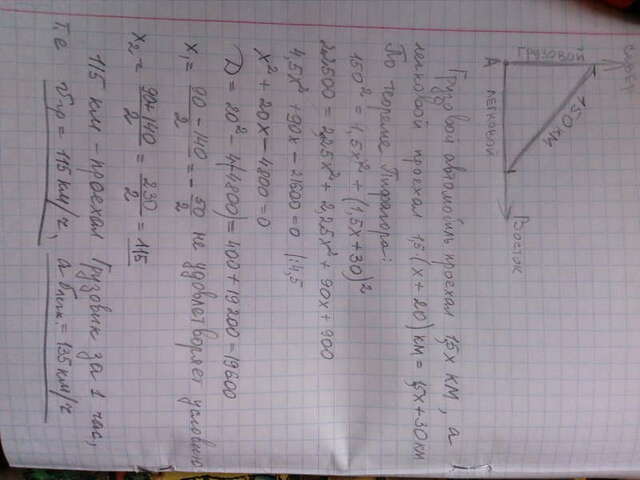 СЕВЕР
ГРУЗОВОЙ
150 КМ
ВОСТОК
А
ЛЕГКОВОЙ
Грузовой автомобиль проехал 1,5x КМ, а
легковой проехал 1,5·(x+20) км = 1,5x+30 км
По теореме Пифагора:
150² = 1,5x² + (1,5x+30)²
22500 = 2,25x² + 2,25x² + 90x + 900
4,5x² + 90x − 21600 = 0 |:4,5
x² + 20x − 4800 = 0
D = 20² − 4(−4800) = 400 + 19200 = 19600
x₁ = (90 − 140)/2 = −50/2 не удовлетворяет условию
x₂ = (90 + 140)/2 = 230/2 = 115
115 км – проехал Грузовик за 1 час,
т.е vгр = 115 км/ч, а vлегк. = 135 км/ч